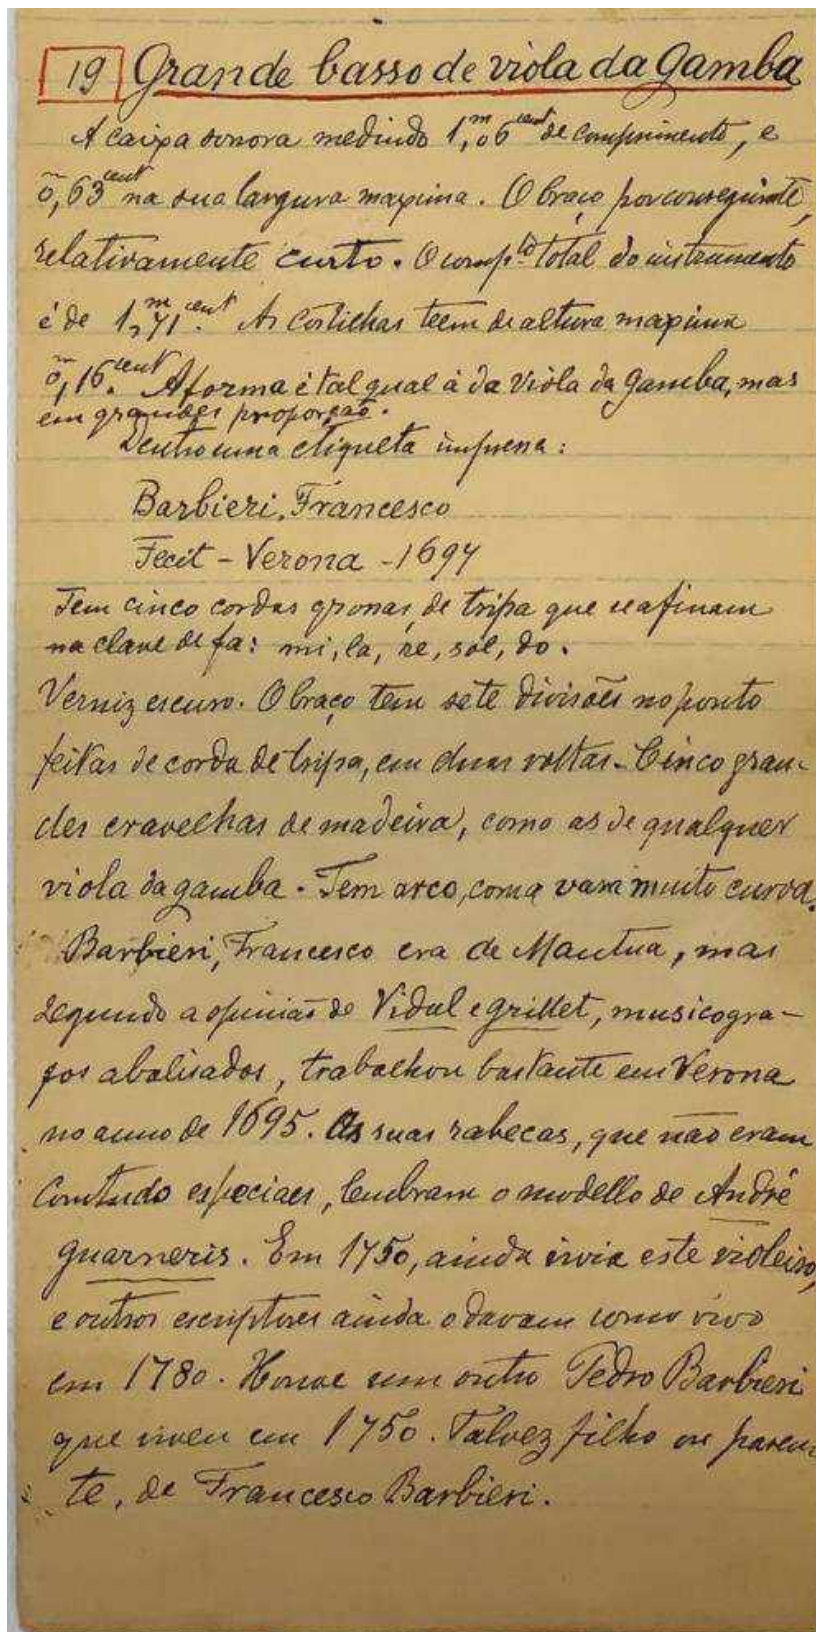 19 Grande basso de viola da Gamba
A caixa sonora medindo 1,m06cent de comprimento, e
0,m63cent na sua largura maxima. O braço por conseguinte,
relativamente curto. O comp.to total do instrumento
é de 1,m71cent. As costilhas teem de altura maxima
0,m16cent. A forma é tal qual á da Viola da gamba, mas
em grandes proporção.
Dentro uma etiqueta impressa:
Barbieri, Francesco
Fecit - Verona - 1697
Tem cinco cordas grossas, de tripa que se afinam
na clave de fa: mi, la, re, sol, do.
Verniz escuro. O braço tem sete divisões no ponto
feitas de corda de tripa, em duas voltas. Cinco gran-
des cravelhas de madeira, como as de qualquer
viola da gamba. Tem arco, com a vara muito curva.
Barbieri, Francesco era de Mantua, mas
segundo a opinião de Vidal e Grillet, musicogra-
fos abalisados, trabalhou bastante em Verona
no anno de 1695. As suas rabecas, que não eram
Comtudo especiaes, lembram o modello de André
Guarneris. Em 1750, ainda vivia este violeiro,
e outros escriptores ainda o davam como vivo
em 1780. Houve um outro Pedro Barbieri
que viveu em 1750. Talvez filho ou paren-
te, de Francesco Barbieri.